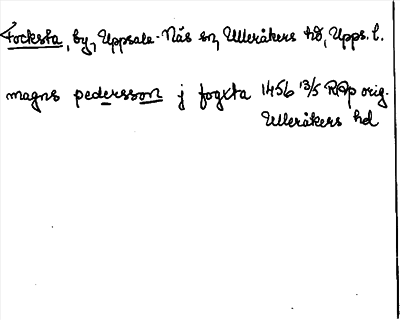 Focksta, by, Uppsala-Näs sn, Ulleråkers hd, Upps. l.
magns pedersson j fogxta 1456 13/5 RAp orig.
Ulleråkers hd